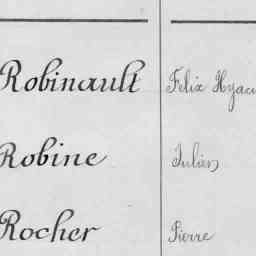 Robinault Felix Hyac
Robine Julien
Rocher Pierre